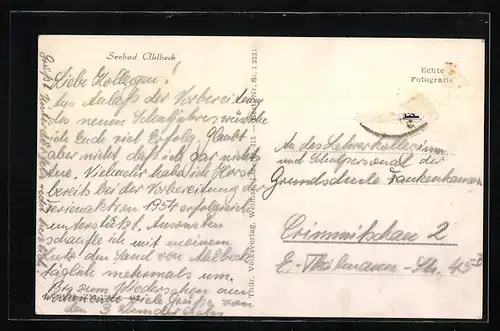 Seebad Ahlbeck
Liebe Kollegen!
Aus Anlaß der Vorbereitung
des neuen Schuljahres wünsche
ich Euch viel Erfolg. Glaubt
aber nicht daß ich gar nichts
tue. Vielmehr habe ich Horst
bereits bei der Vorbereitung der
Ferienaktion 1954 erfolgreich
unterstützt. Ansonsten
schaufle ich mit meinem
Auto den Sand von Ahlbeck
täglich mehrmals um.
Bis zum Wiedersehen am
Wochenende viele Grüße von
den 3
Echte
Fotografie
An das Lehrerkollegium
und Schulpersonal der
Grundschule Frankenhausen
Crimmitschau 2
E.-Thälmann-Str. 45